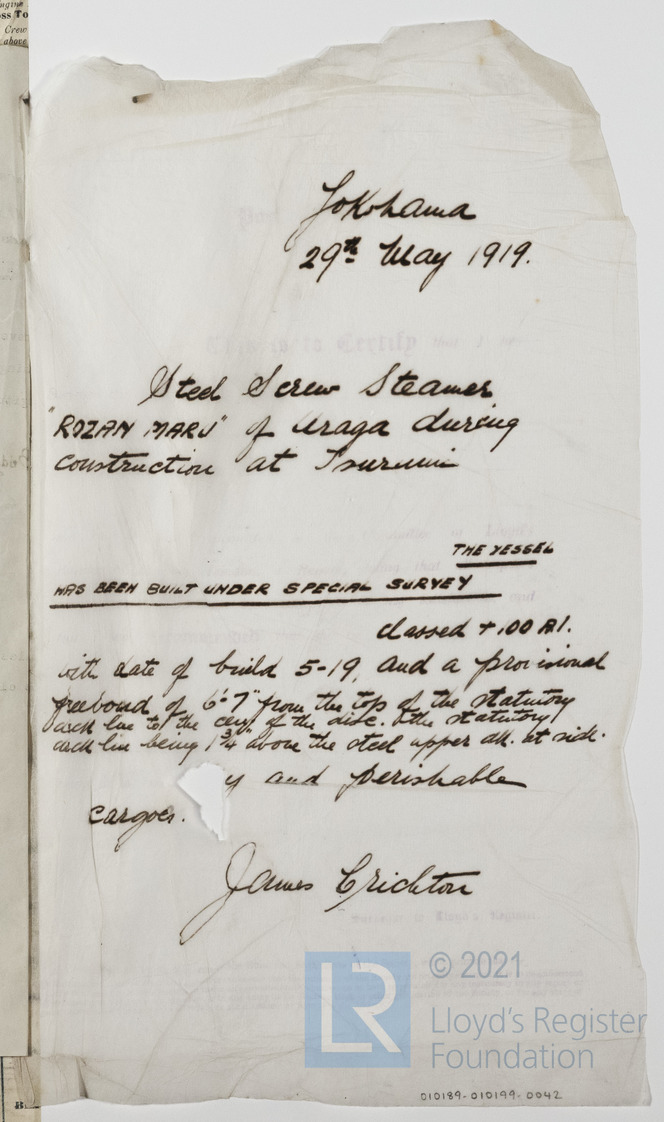 Yokohama
29th May 1919.
This is to Certify that I
Steel Screw Steamer
"ROZAN MARU" of Uraga during
construction at Tsurumi
THE VESSEL
HAS BEEN BUILT UNDER SPECIAL SURVEY
classed + 100 A1.
with date of build 5-19, and a provisional
freeboard of 6'-7" from the top of the statutory
deck line to the center of the disc. the statutory
deck line being 1 3/4" above the steel upper dk. at side.
y and perishable
cargoes.
James Crichton
Surveyor to Lloyd's Register.
© 2021
LR
Lloyd's Register
Foundation
010189-010199-0042